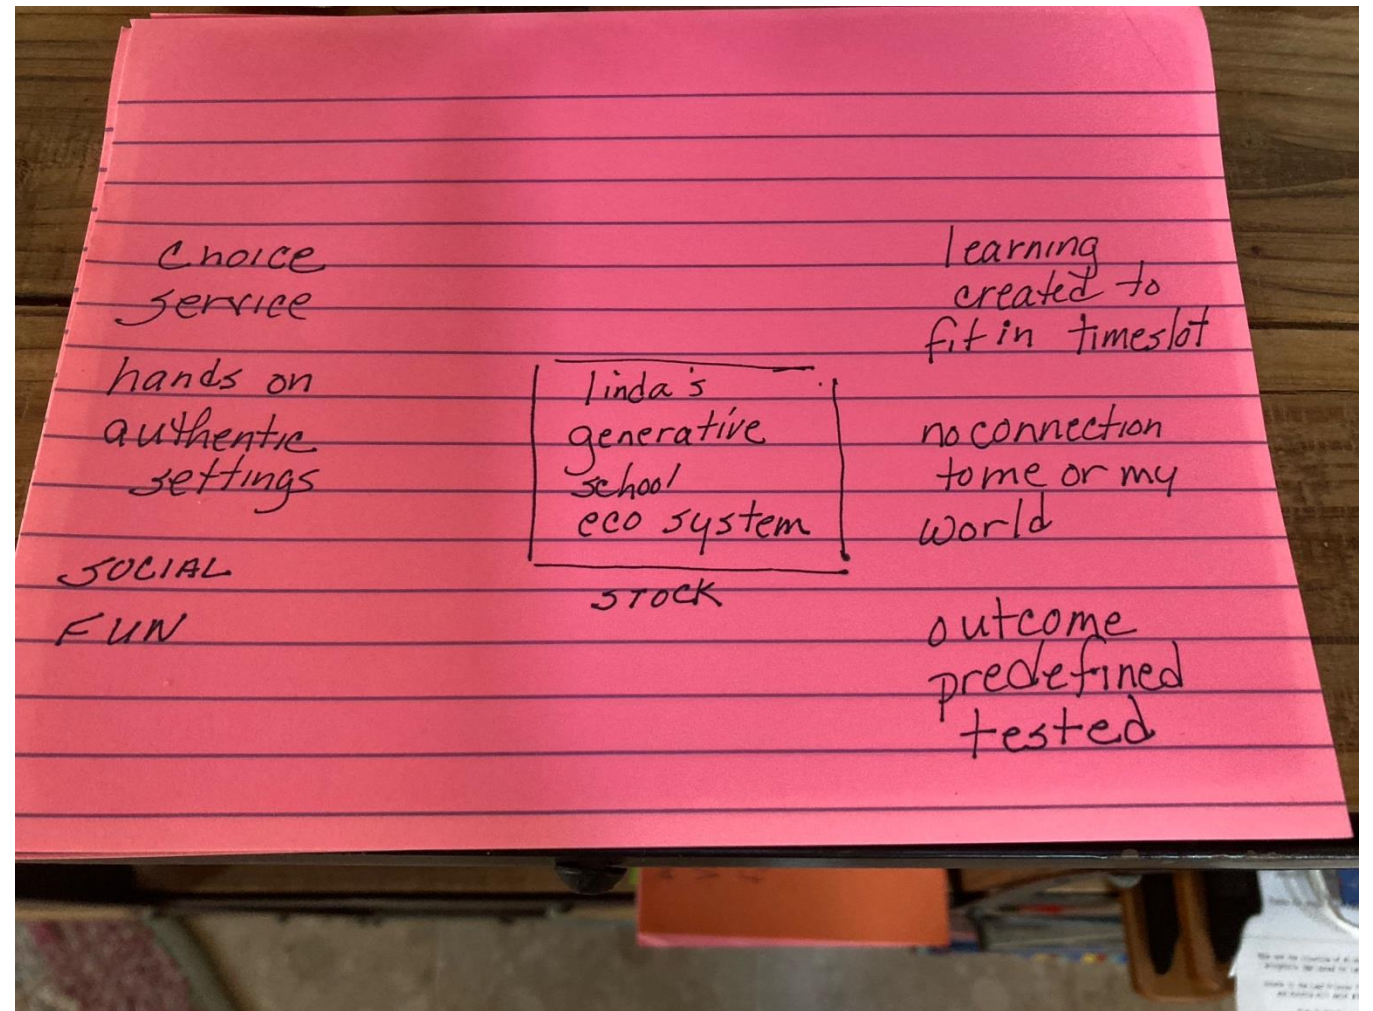 choice
service
hands on
authentic
settings
SOCIAL
FUN
linda's
generative
school
eco system
STOCK
learning
created to
fit in timeslot
no connection
to me or my
world
outcome
predefined
tested